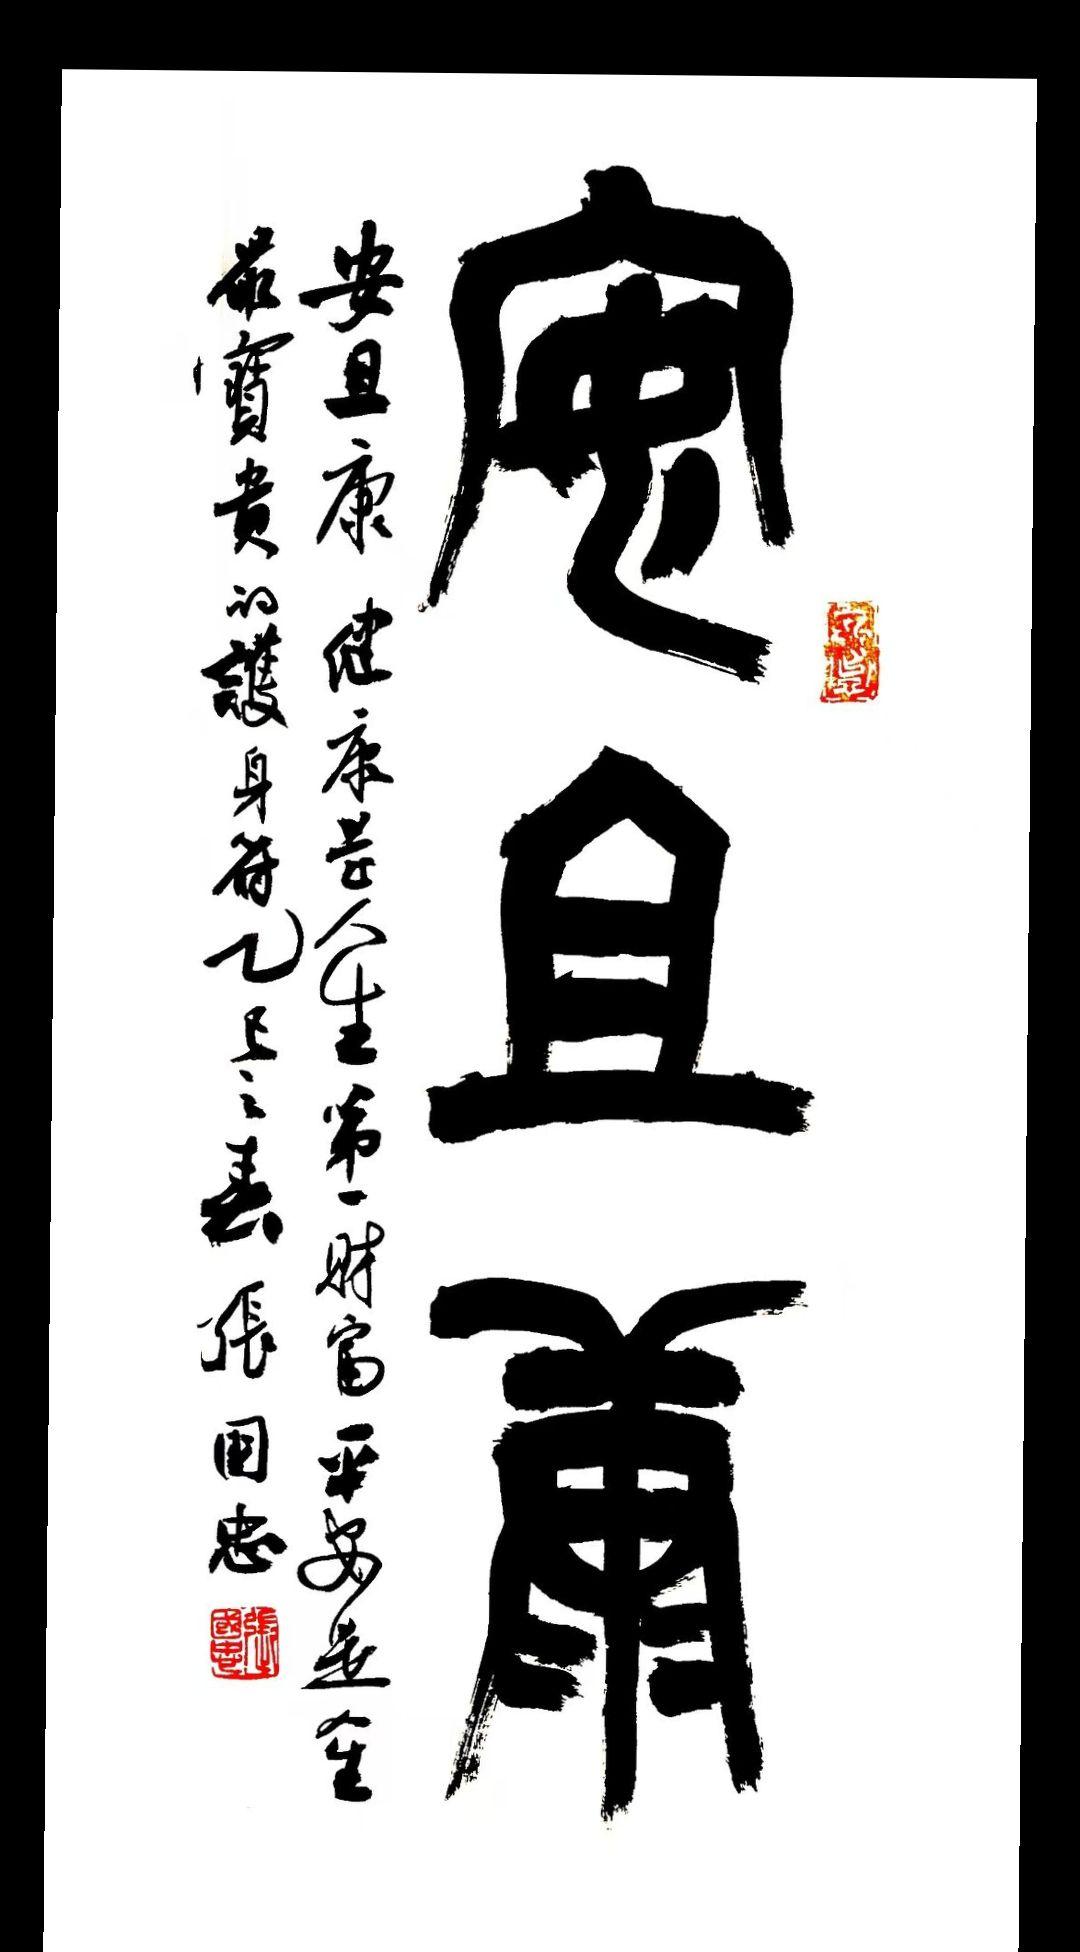 安且康
安且康 健康是人生第一財富平安是人生
最寶貴的護身符乙巳之春 張国忠
張國忠